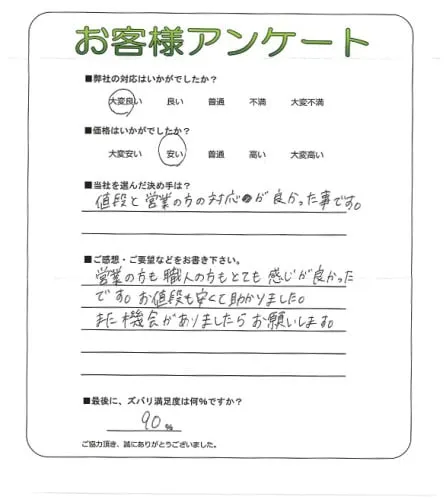 お客様アンケート
■弊社の対応はいかがでしたか？
大変良い　良い　普通　不満　大変不満
■価格はいかがでしたか？
大変安い　安い　普通　高い　大変高い
■当社を選んだ決め手は？
値段と営業の方の対応が良かった事です。
■ご感想・ご要望などをお書き下さい。
営業の方も職人の方もとても感じが良かった
です。お値段も安くて助かりました。
また機会がありましたらお願いします。
■最後に、ズバリ満足度は何%ですか？
90 %
ご協力頂き、誠にありがとうございました。